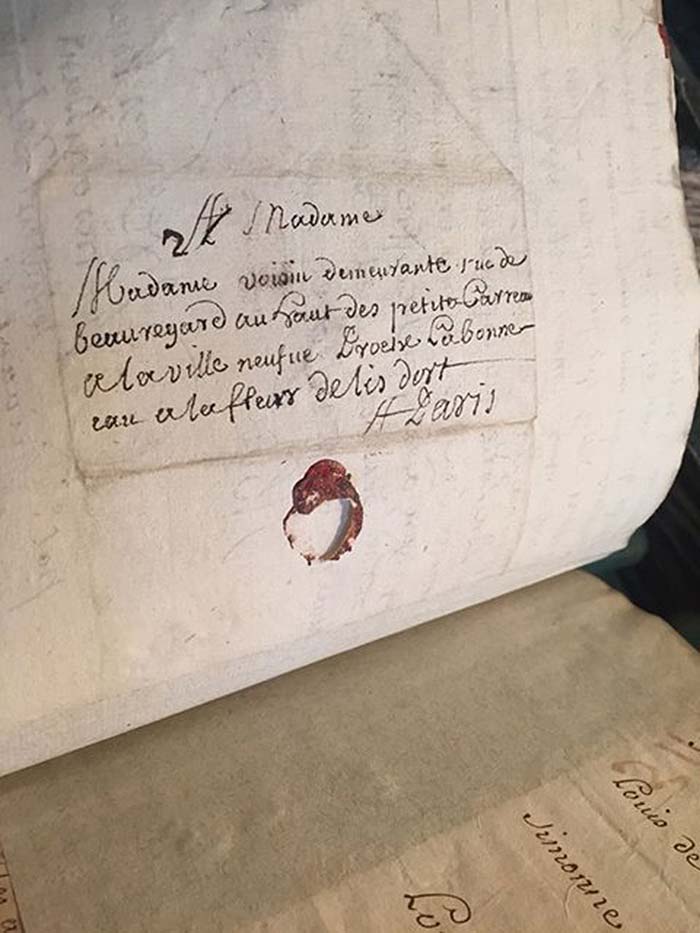 A Madame
Madame voisin demeurante rue de
beauregard au haut des petits Carreau
a la ville neufue proche La bonne
eau a la fleur de lis dort
A Paris
Louis de
Simonne